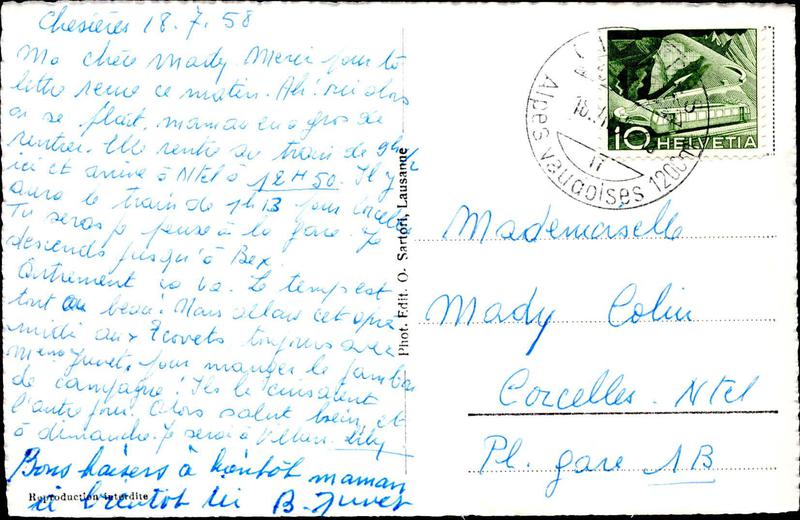 Chesières 18.7.58
Ma chère Mady Merci pour ta
lettre reçue ce matin. Ah! oui alors
on se plaît, maman en a gros de
rentrer. Elle rentre au train de 9h
ici et arrive à Ntel à 12H50. Il y
aura le train de 1h13 pour Corcelles
Tu seras je pense à la gare. Je
descends jusqu'à Bex.
Autrement ça va. Le temps est
tout au beau! Nous allons cet après
midi aux toujours avec
Mme Juvet, pour manger le jambon
de campagne! Ils le cuisaient
l'autre jour. Alors salut bien, et
à dimanche. Je serai à Villars. Lily
Bons baisers à bientôt maman
à bientôt B. Juvet
Reproduction interdite
Phot. Edit. O. Sartori, Lausanne
Alpes vaudoises 1200m
18.
17
10 HELVETIA
Mademoiselle
Mady Colin
Corcelles. Ntel
Pl. gare 1B